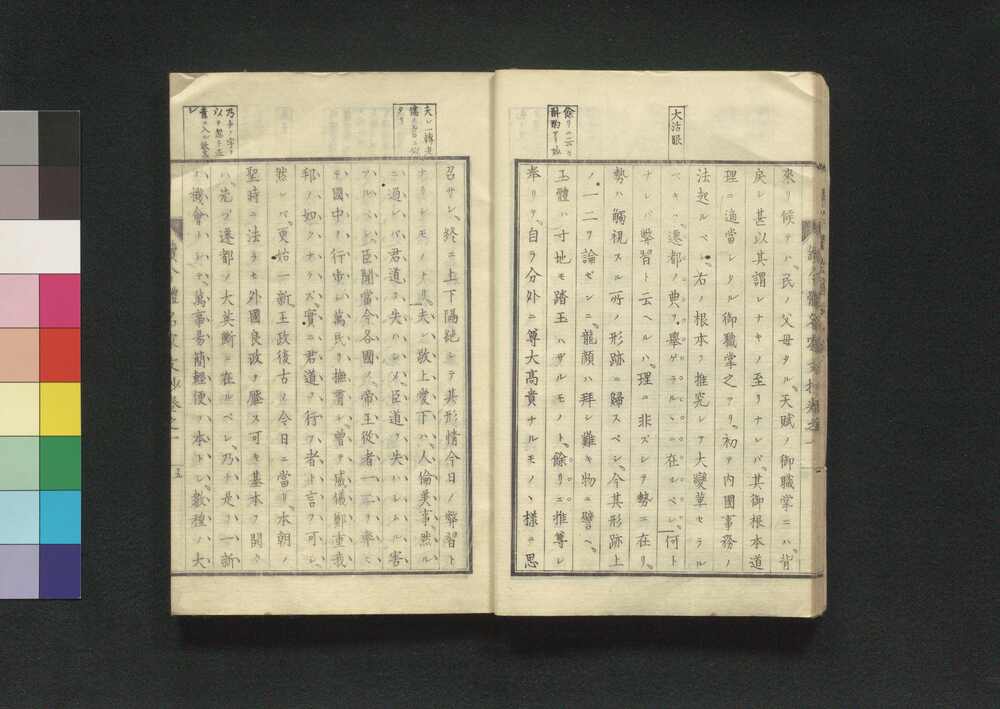 大活眼
來リ候テハ民ノ父母タル天賦ノ御職掌ニハ背
戾シ甚以其謂レナキノ至リナレバ其御根本道
理ニ適當シタル御職掌之アリ初テ内國事務ノ
法起ルベシ右ノ根本ヲ推究シテ大變革セラル
ベキハ遷都ノ典ヲ擧ゲラルヽニ在ルベシ何ト
ナレバ弊習ト云ヘルハ理ニ非ズシテ勢ニ在リ
勢ハ觸視スル所ノ形跡ニ歸スベシ今其形跡上
ノ一二ヲ論ゼンニ龍顔ハ拜シ難キ物ニ譬ヘ
玉體ハ寸地モ踏玉ハザルモノト餘リニ推尊シ
奉リテ自ラ分外ニ尊大高貴ナルモノヽ樣ニ思
召サレ終ニ上下隔絶シテ其形情今日ノ弊習ト
ナリシモノナリ夫レ敬上愛下ハ人倫美事然ル
ニ過レバ君道ヲ失ハシメ臣道ヲ失ハシムル害
アルベシ臣聞當今各國ノ帝王從者一二ヲ率ヒ
テ國中ヲ行テ萬民ヲ撫育シ曾テ威儀鄭重我
邦ノ如クナラズ實ニ君道ヲ行フ者ト言フ可シ
然レバ更始一新王政復古ノ今日ニ當リ本朝ノ
聖時ニ法ラセ外國良政ヲ壓ス可キ基本ヲ開カ
ハ先ヅ遷都ノ大英斷ニ在ルベシ乃チ是ヲ一新
ハ機會トシテ萬事易簡輕便ヲ本トシ數種ハ大
五